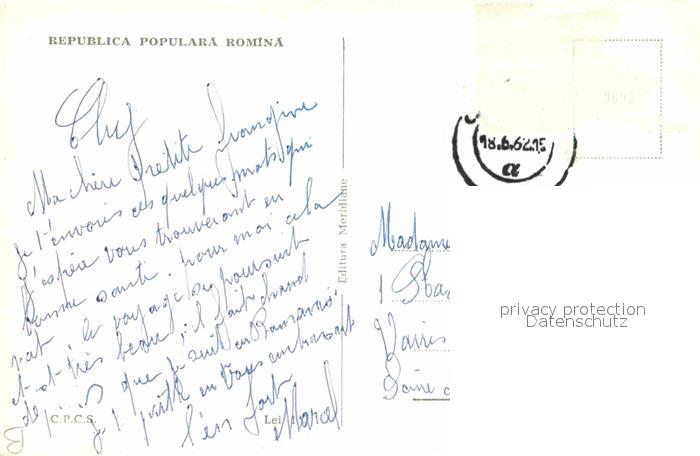 REPUBLICA POPULARĂ ROMÎNĂ
Cluj
Ma chère petite Françoise
Je t'envoies ces quelques mots qui
j'espère vous trouveront en
bonne santé. pour moi cela
vat, le voyage se poursuit
et très beau, il fait chaud
depuis que je suis en Roumanie
je quitte en vous embrassant
bien fort
Marcel
C.P.C.S.
Lei
Editura Meridiane
3697
18.6.62.15
a
Madame
1
Paris
Seine
privacy protection
Datenschutz